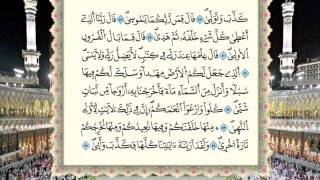 كَذَّبَ وَتَوَلَّىٰ قَالَ فَمَن رَّبُّكُمَا يَٰمُوسَىٰ قَالَ رَبُّنَا ٱلَّذِىٓ
أَعْطَىٰ كُلَّ شَىْءٍ خَلْقَهُۥ ثُمَّ هَدَىٰ قَالَ فَمَا بَالُ ٱلْقُرُونِ
ٱلْأُولَىٰ قَالَ عِلْمُهَا عِندَ رَبِّى فِى كِتَٰبٍ لَّا يَضِلُّ رَبِّى وَلَا يَنسَى
ٱلَّذِى جَعَلَ لَكُمُ ٱلْأَرْضَ مَهْدًا وَسَلَكَ لَكُمْ فِيهَا
سُبُلًا وَأَنزَلَ مِنَ ٱلسَّمَآءِ مَآءً فَأَخْرَجْنَا بِهِۦٓ أَزْوَٰجًا مِّن نَّبَاتٍ
شَتَّىٰ كُلُوا۟ وَٱرْعَوْا۟ أَنْعَٰمَكُمْ إِنَّ فِى ذَٰلِكَ لَءَايَٰتٍ لِّأُو۟لِى
ٱلنُّهَىٰ مِنْهَا خَلَقْنَٰكُمْ وَفِيهَا نُعِيدُكُمْ وَمِنْهَا نُخْرِجُكُمْ
تَارَةً أُخْرَىٰ وَلَقَدْ أَرَيْنَٰهُ ءَايَٰتِنَا كُلَّهَا فَكَذَّبَ وَأَبَىٰ